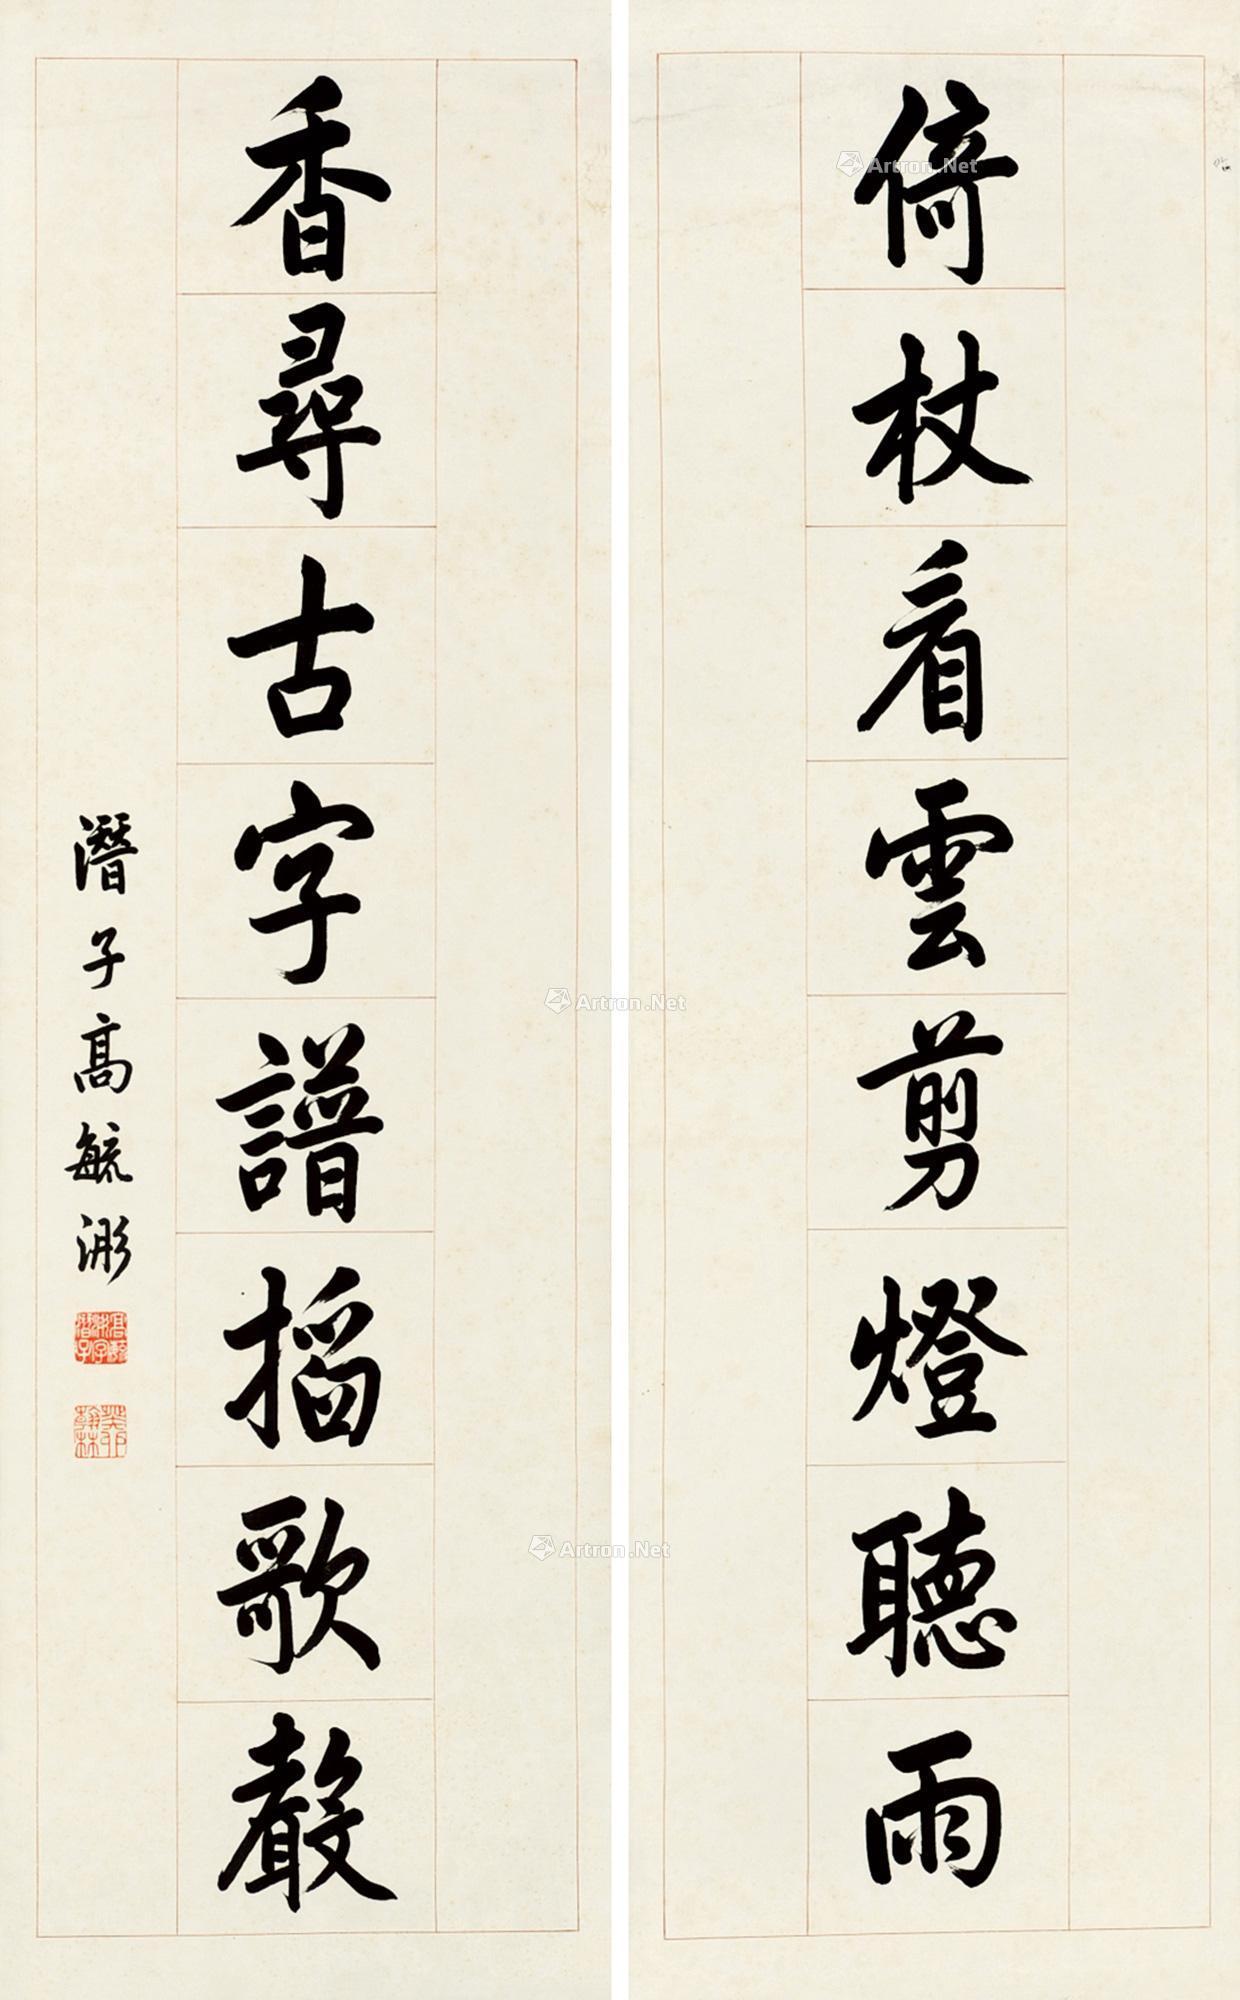 倚杖看雲剪燈聽雨
香尋古字譜搯歌聲
潛子高毓浵
高毓浵字潛子
癸卯翰林
Artron.Net
Artron.Net
Artron.Net